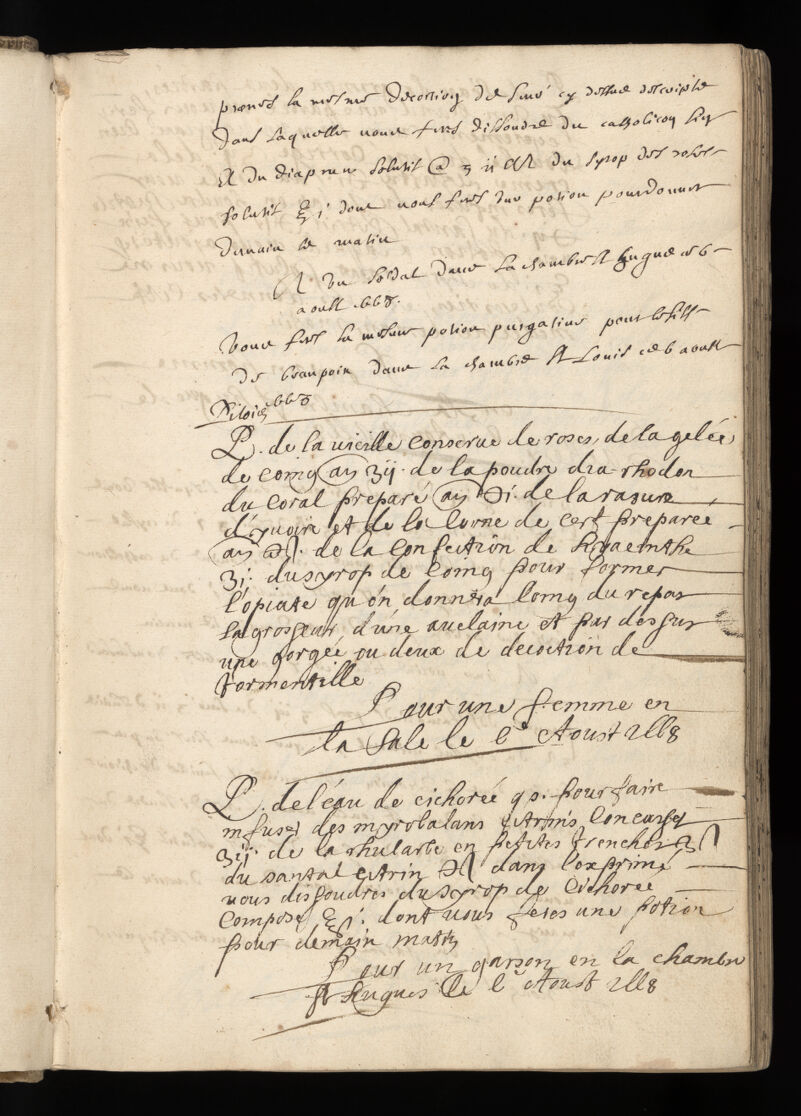 prenes la mesme decoction de sené cy dessus descripte
dans laquelle vous feres dissoudre du catholicon fin
et du diaprun solutif @ ʒ ii du syrop des roses
solutif ℥ i dont vous feres une potion pour donner
demain le matin
un soldat dans la chambre St hugue ce 6
aoust 668.
Vous feres la mesme potion purgative pour
de beaupoin dans la chambre St Louis ce 6 aoust
668
P. de la vieille conserve de roses, de la gelée
de coing añ ʒij. de la poudre dia-rhodon
du coral preparé añ ℈i. de la rasure
d'yvoire et de la corne de cerf preparée
añ ℈ʃ. de la confection de hyacinthe
ʒi. du syrop de coing pour former
l'opiate qu'on donnera loing du repas
la grosseur d'une avelaine et par dessus
une gorgée ou deux de decoction de
tormentille
Pour une femme en
la sale le 6e Aoust 1668
P. de l'éau de cichorée qs. pour faire
infuser des myrobalans citrins concassez
ʒij. de la rhubarbe en petites trenches ʒʃ
du santal citrin ℈ʃ dans l'exprimé
vous dissoudres du syrop de cichorée
composé ℥i. dont vous feres une potion
pour demain matin
Pour un garson en la chambre
St Hugues le 6e Aoust 1668